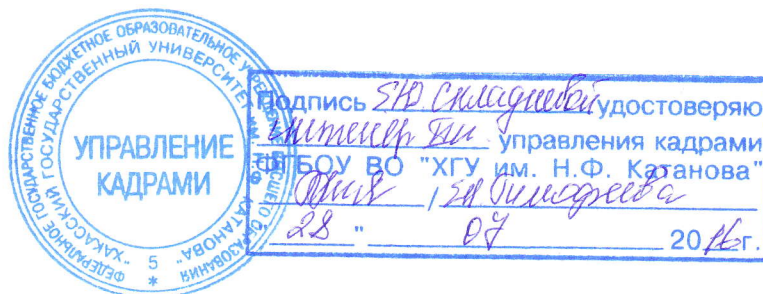 ФЕДЕРАЛЬНОЕ ГОСУДАРСТВЕННОЕ БЮДЖЕТНОЕ ОБРАЗОВАТЕЛЬНОЕ УЧРЕЖДЕНИЕ ВЫСШЕГО ОБРАЗОВАНИЯ
"ХАКАССКИЙ ГОСУДАРСТВЕННЫЙ УНИВЕРСИТЕТ им. Н.Ф. КАТАНОВА"
УПРАВЛЕНИЕ
КАДРАМИ
5
*
Подпись ЕЮ Складневой удостоверяю
инженер управления кадрами
ФГБОУ ВО "ХГУ им. Н.Ф. Катанова"
/ ЕН Тимофеева
" 28 " 07 2016г.